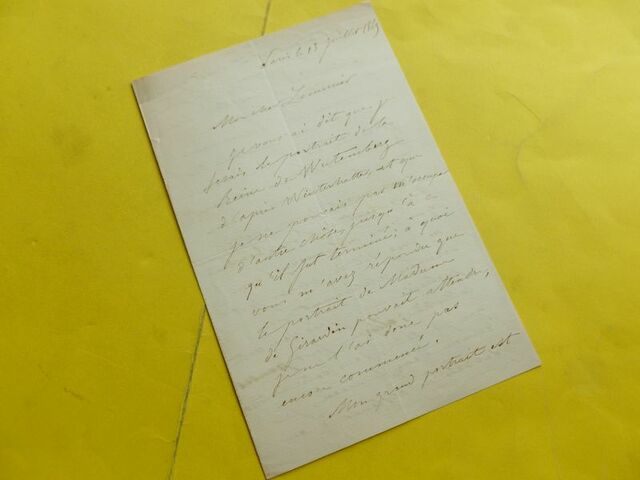 Paris le 13 juillet 1869
Mon cher Lemercier
Je vous ai dit que je
ferais le portrait de la
Reine de Wurtemberg
d'après Winterhalter, et que
je ne pouvais pas m'occuper
d'autre chose, jusqu'à ce
qu'il fut terminé; à quoi
vous m'avez répondu que
le portrait de Madame
de Girardin pouvait attendre,
je ne l'ai donc pas
encore commencé.
Mon grand portrait est